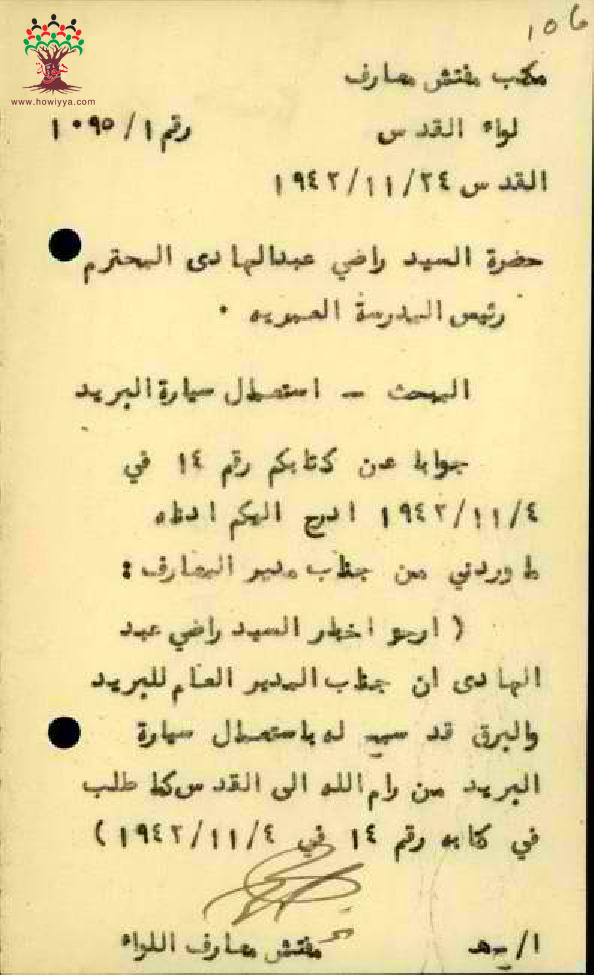 ١٥٦
www.howiyya.com
مكتب مفتش معارف
لواء القدس رقم ١٠٩٥/١
القدس ١٩٤٢/١١/٢٤
حضرة السيد راضي عبدالهادى المحترم
رئيس المدرسة العمريه ٠
البحث - استعمال سيارة البريد
جوابا عن كتابكم رقم ١٤ في
١٩٤٢/١١/٤ ادرج اليكم ادناه
ما وردني من جناب مدير المعارف :
( ارجو اخطار السيد راضي عبد
الهادى ان جناب المدير العام للبريد
والبرق قد سمح له باستعمال سيارة
البريد من رام الله الى القدس كما طلب
في كتابه رقم ١٤ في ١٩٤٢/١١/٤ )
مفتش معارف اللواء